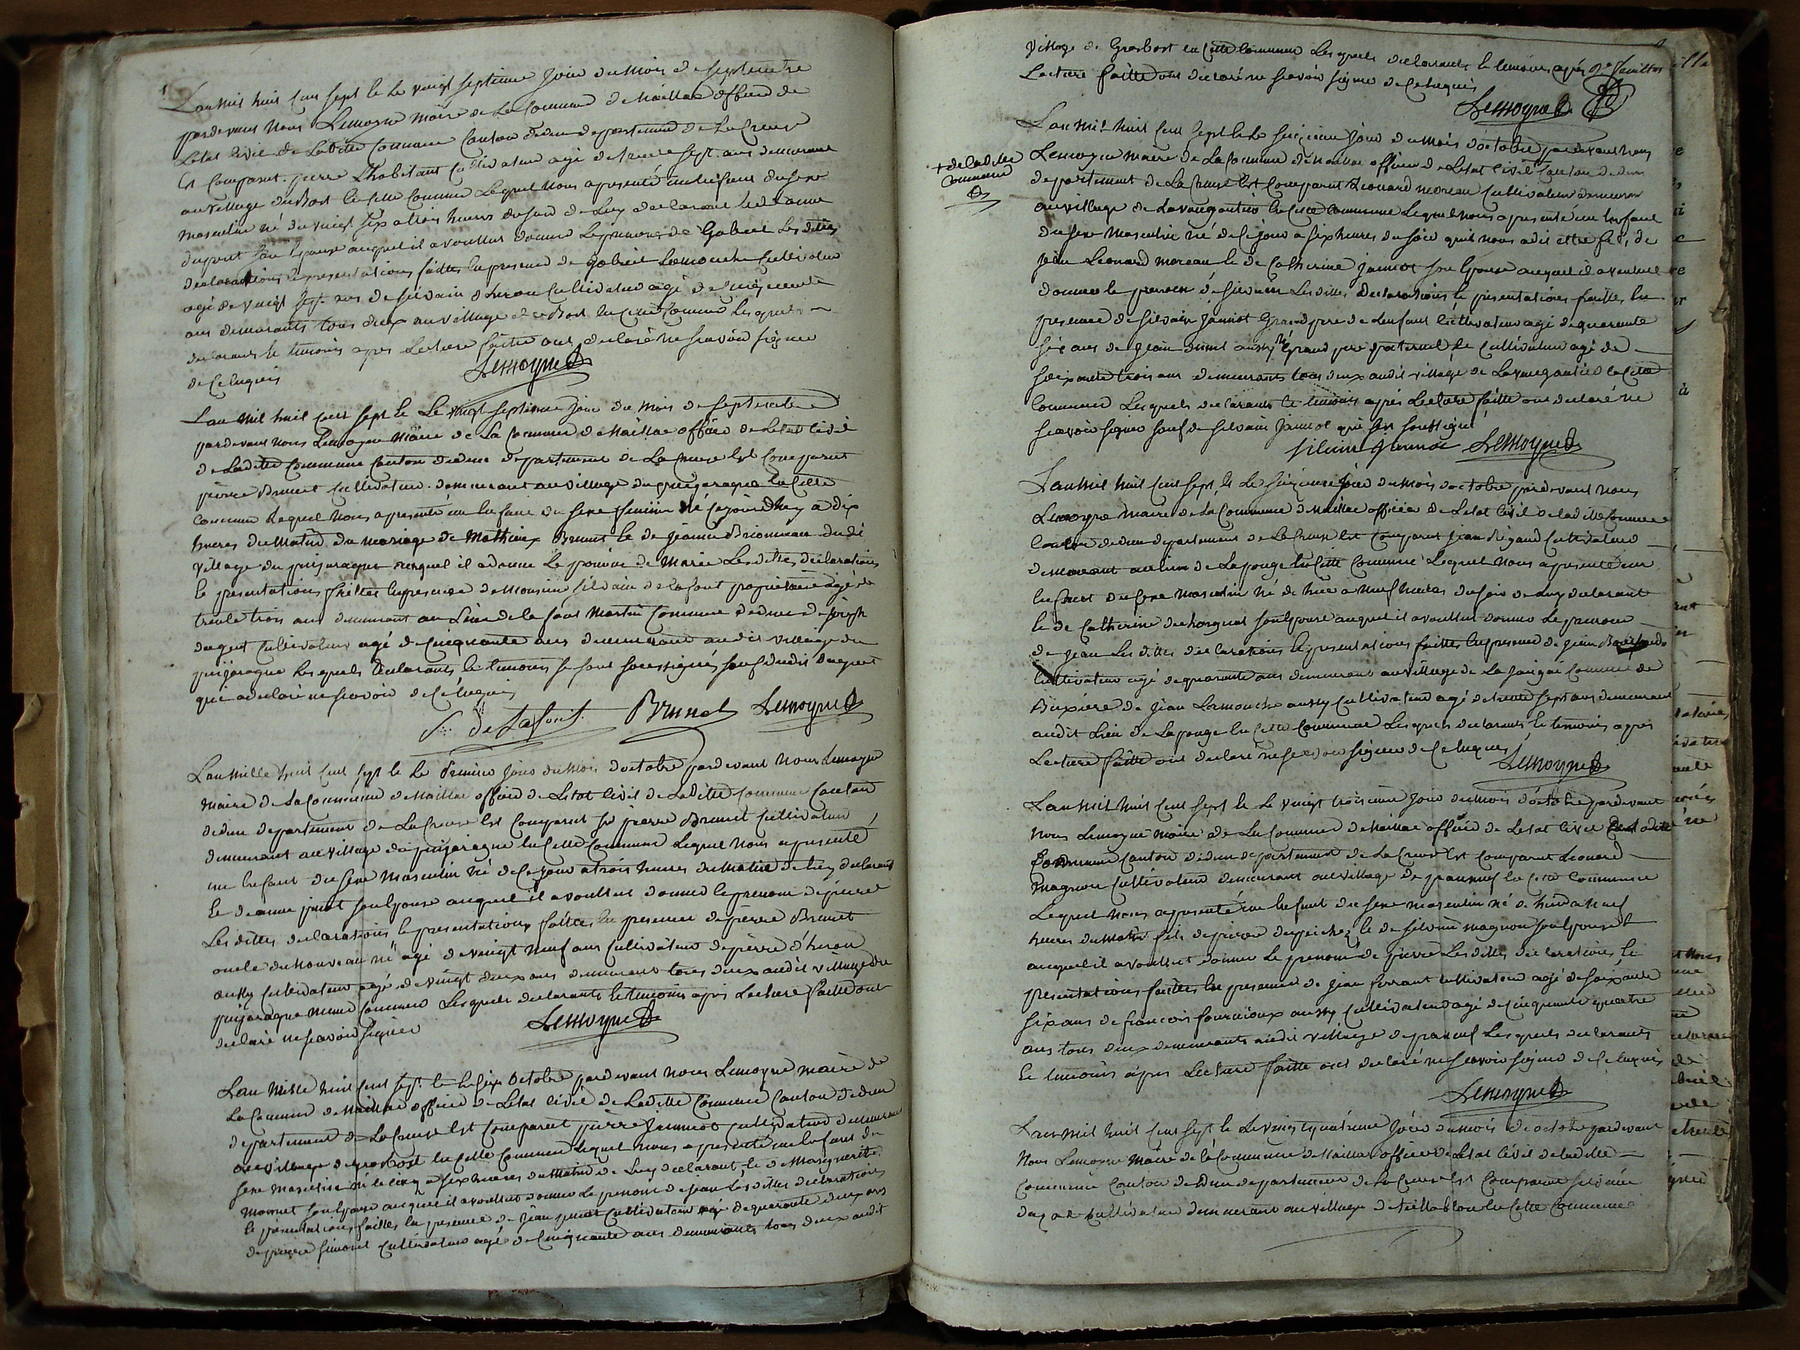 Lan mil huit Cens sept et le vingt septieme Jour du mois de septembre
pardevant Nous Lemoyne maire de La Commune de Maillat officier de
Letat Civil de Ladite Commune Canton dedun departement de La Creuse
Est Comparut pierre Lhabitant Cultivateur agé de trente sept ans demeurant
au village du Bost en Cette Commune Lequel Nous a presenté un Enfant du sexe
masculin né du vingt six a trois heures du soir de Luy declarant et de
dupont son Epouse auquel il a voullut donner Le prenom de Gabriel Les dittes
declarations Et presentations faittes En presence de gabriel Lamouche Cultivateur
agé de vingt sept ans de silvain Cultivateur agé de Cinquante
ans demeurants tous deux au village du Bost En Cette Commune Les quels
declarants Et temoins apres Lecture faitte ont declaré ne scavoir signer
de Ce Enquis
Lemoyne
Lan mil huit Cens sept et Le vingt septieme jour du mois de septembre
pardevant nous Lemoyne Maire de La Commune de Maillat officier de Letat Civil
de Laditte Commune Canton dedun departement de La Creuse Est Comparut
pierre Brunet Cultivateur demeurant au village du puijaragne En Cette
Commune Lequel Nous a presenté un Enfant du sexe feminin Né Cejourdhuy a dix
heures du Matin du mariage de Mathieux Brunet Et de jeanne Brionneau dudi
village du puijaragne auquel il a donné Le prénom de Marie Les dittes déclarations
Et presentations faittes En presence de Monsieur silvain de Lafont propriétaire agé de
trente trois ans demeurant au Lieu de la font Martin Commune dedun de
daguet Cultivateur agé de Cinquante ans demeurant audit village du
puijaragne Les quels declarants Et temoins se sont soussignés sauf dudit daguet
qui a declaré ne scavoir de Ce Enquis
S. de Lafont Brunet Lemoyne
Lan mille huit Cens sept et le Premier Jour du Mois doctobre pardevant Nous Lemoyne
maire de La Commune de Maillat officier de Letat Civil de Laditte Commune Canton
dedun departement de La Creuse Est Comparut pierre Brunet Cultivateur
demeurant au village du puijaragne En Cette Commune Lequel Nous a presenté
un Enfant du sexe masculin né de Ce jour a trois heures du Matin de Luy declarant
Et deanne pinot son Epouse auquel il a voullut donner le prenom de pierre
Les dittes declarations Et presentations faittes En presence de pierre Brunet
oncle du nouveau né agé de vingt neuf ans Cultivateur de pierre
aussy Cultivateur agé de vingt deux ans demeurant tous deux audit village du
puijaragne meme Commune Lesquels declarants Et temoins apres Lecture faitte ont
declaré ne scavoir signer
Lemoyne
Lan Mille huit Cens sept Et Le six octobre pardevant Nous Lemoyne maire de
La Commune de Maillat officier de Letat Civil de Laditte Commune Canton dedun
departement de La Creuse Est Comparut pierre Janniot Cultivateur demeurant
au village de grosbost En Cette Commune Lequel nous a presenté un Enfant du
sexe masculin né le Cinq a six heures du Matin de Luy declarant Et de Marguerite
son Epouse auquel il a voullut donner Le prenom de jean Les dittes declarations
Et presentations faittes En presence de jean pinot Cultivateur agé de quarante deux ans
de pierre simonet Cultivateur agé de Cinquante ans demeurants tous deux audit
village de Grosbost en Cette Commune Les quels declarants Et temoins apres
Lecture faitte ont declaré ne scavoir signer de Ce Enquis
Lemoyne
+ de la ditte
Commune
Lan mil huit Cens sept Et Le seizieme Jour du mois doctobre pardevant Nous
Lemoyne maire de La Commune de Maillat officier de Letat Civil Canton dedun
departement de La Creuse Est Comparut Leonard moreau Cultivateur demeurant
au village de Lavaugautier En Cette Commune Lequel Nous a presenté un Enfant
du sexe Masculin Né de Ce jour a six heures du soir quil nous a dit estre fils de
jean Leonard moreau Et de Catherine janniot son Epouse auquel il a voullut
donner le prenom de silvain Les dittes declarations Et presentations faittes En
presence de silvain Janniot Grand pere de Lenfant Cultivateur agé de quarante
six ans de jean aussy Grand pere paternel Et Cultivateur agé de
soixante trois ans demeurants tous deux audit village de Lavaugautier En Cette
Commune Les quels declarants Et temoins apres Lecture faitte ont declaré ne
scavoir signer sauf de silvain Janniot qui sest soussigné
silvain Janniot Lemoyne
Lan mil huit Cens sept et Le seizieme Jour du mois doctobre pardevant Nous
Lemoyne Maire de La Commune de Maillat officier de Letat Civil de laditte Commune
Canton dedun departement de La Creuse Est Comparut jean Rigaud Cultivateur
demeurant au Lieu de Lapouge En Cette Commune Lequel Nous a presenté un
Enfant du sexe Masculin Né de hier a Neuf heures du soir de Luy declarant
Et de Catherine son Epouse auquel il a voullut donner Le prenom
de jean Les dittes declarations Et presentations faittes En presence de jean
Cultivateur agé de quarante ans demeurant au village de La Commune de
Buxiere de jean Lamouche aussy Cultivateur agé de trente sept ans demeurant
audit Lieu de Lapouge En Cette Commune Les quels declarants Et temoins apres
Lecture faitte ont declaré ne scavoir signer de Ce Enquis
Lemoyne
Lan mil huit Cens sept Et Le vingt troisieme Jour du mois doctobre pardevant
Nous Lemoyne Maire de La Commune de Maillat officier de Letat Civil de Laditte
Commune Canton dedun departement de La Creuse Est Comparut Leonard
Magnon Cultivateur demeurant au village de En Cette Commune
Lequel Nous a presenté un Enfant du sexe masculin né de hier a Neuf
heures du Matin fils de pierre Et de silvine magnon son Epouse Et
auquel il a voullut donner Le prenom de pierre Les dittes declarations Et
presentations faittes En presence de jean Cultivateur agé de soixante
six ans de francois fournioux aussy Cultivateur agé de Cinquante quatre
ans tous deux demeurants audit village Les quels declarants
Et temoins apres Lecture faitte ont declaré ne scavoir signer de Ce Enquis
Lemoyne
Lan mil huit Cens sept Et Le vingt quatrieme Jour du mois doctobre pardevant
Nous Lemoyne Maire de la Commune de Maillat officier de Letat Civil de laditte
Commune Canton de dun departement de La Creuse Est Comparut
Cultivateur demeurant au village de En Cette Commune